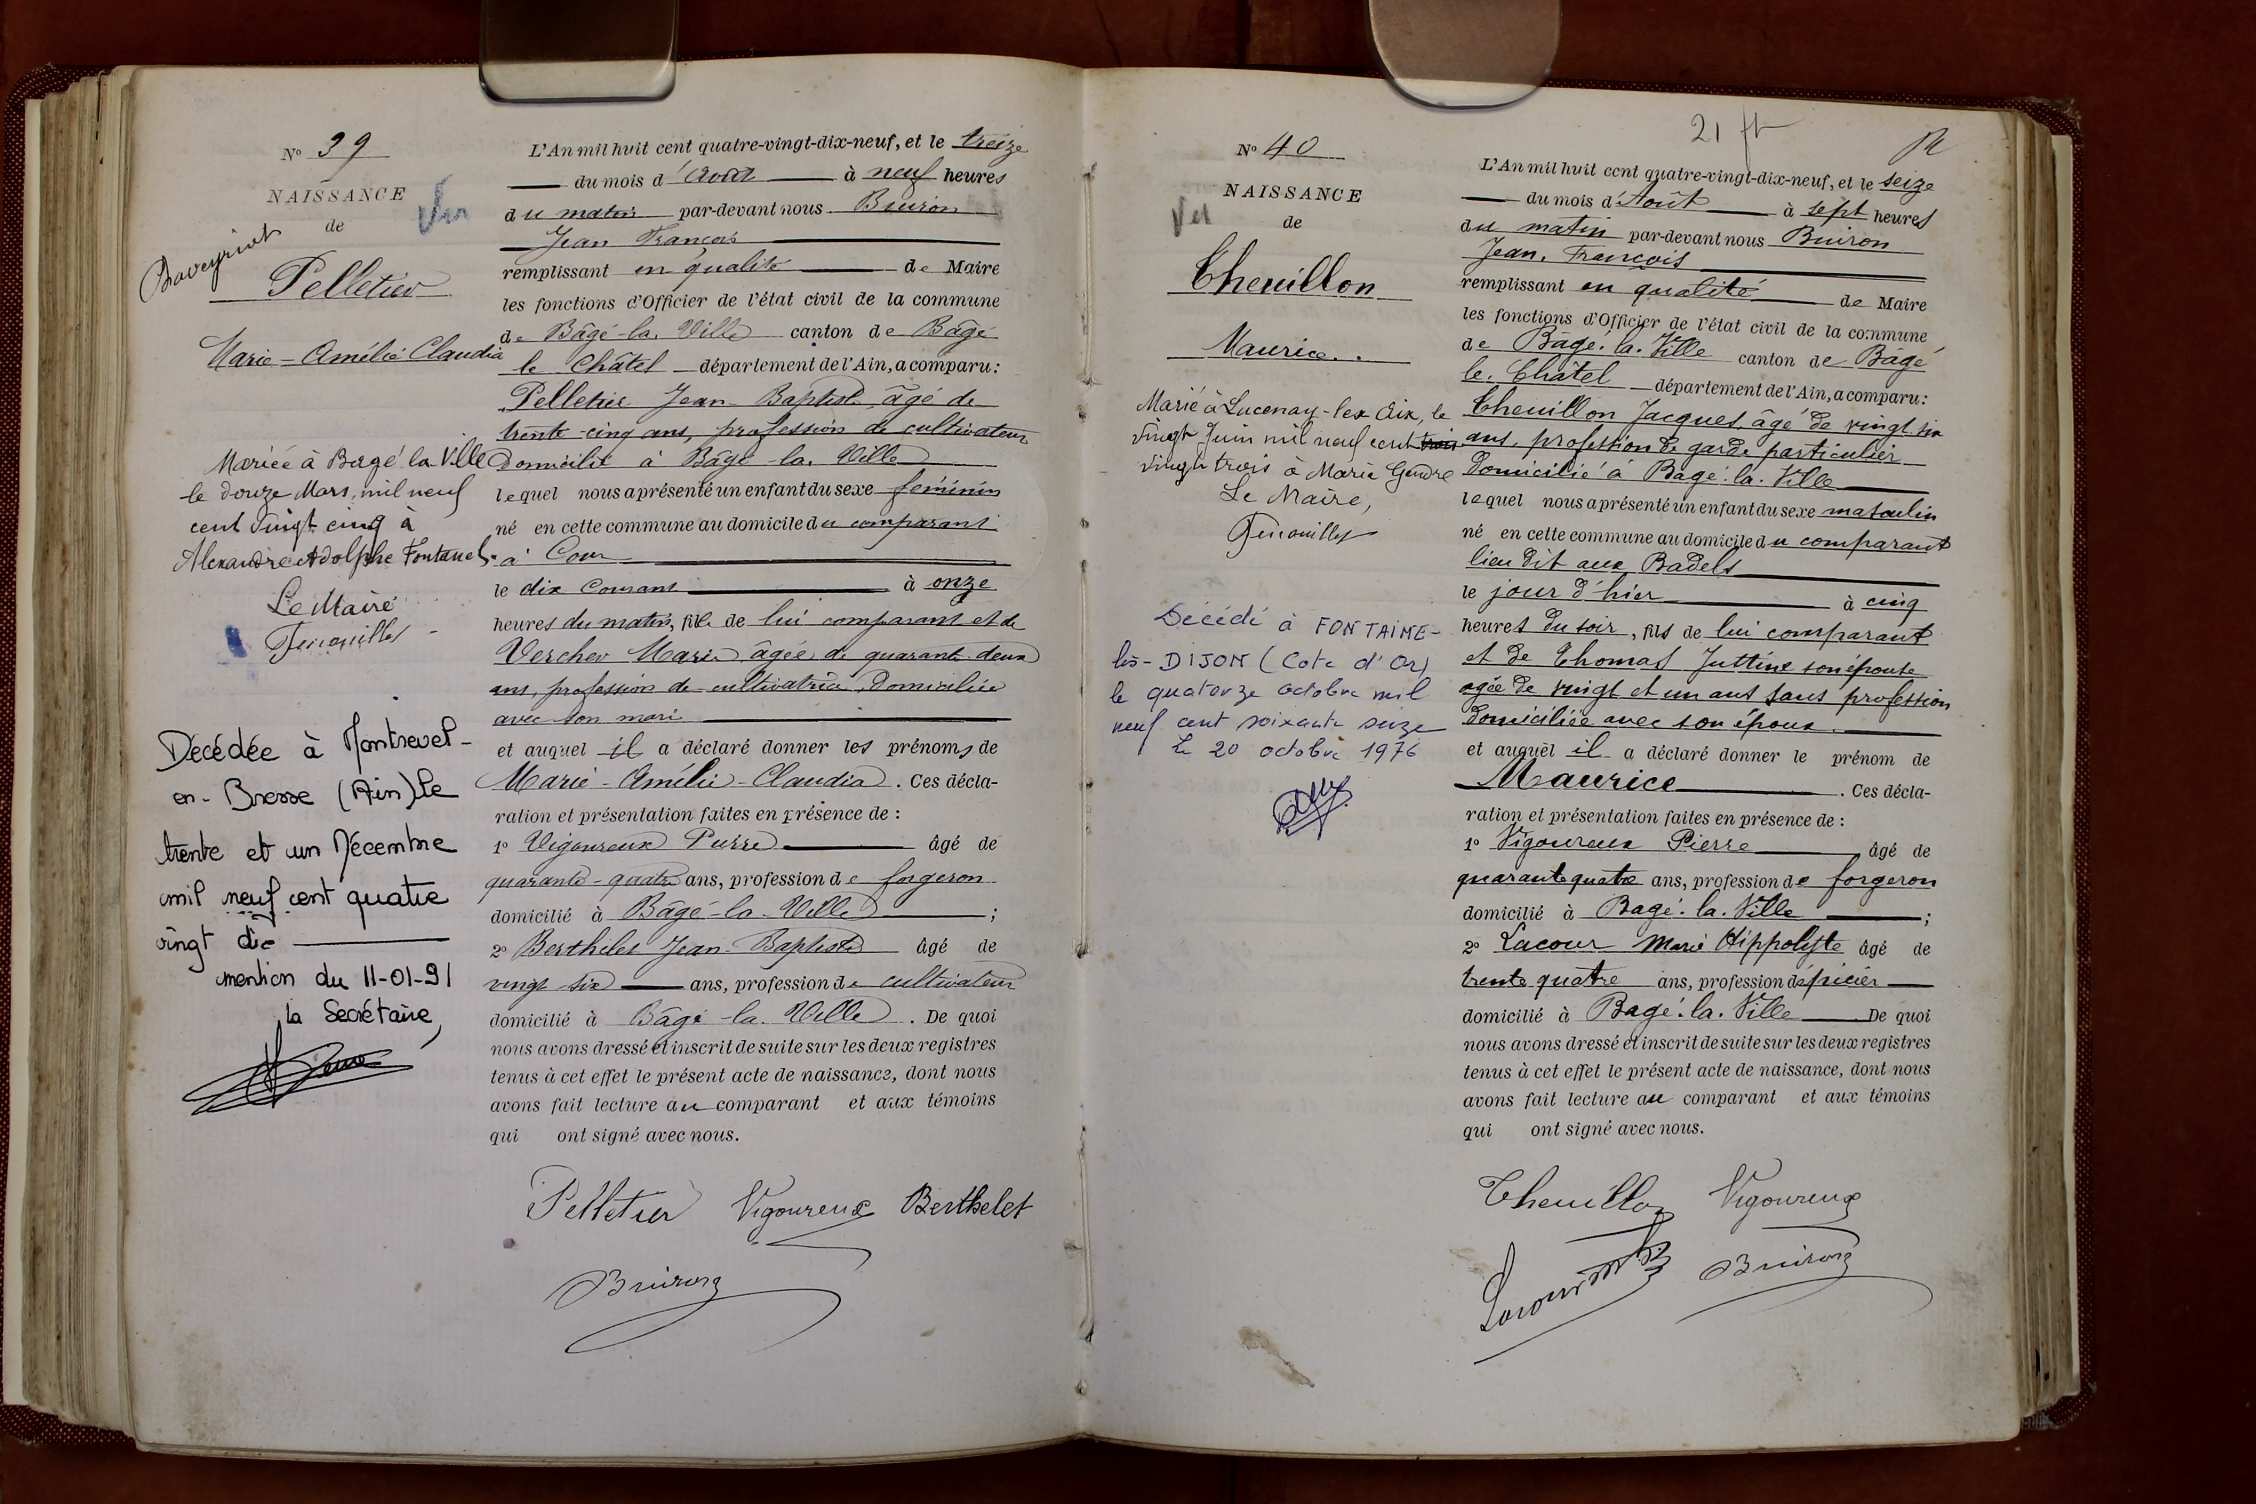 N° 39
NAISSANCE
de
Pelletier
Marie-Amélie Claudia
Mariée à Bagé la Ville
le douze Mars, mil neuf
cent vingt cinq à
Alexandre Adolphe Fontanel.
Le Maire
Décédée à Montrevel-
en-Bresse (Ain) le
trente et un Décembre
mil neuf cent quatre
vingt dix
mention du 11-01-91
la Secrétaire,
L'An mil huit cent quatre-vingt-dix-neuf, et le treize
du mois d'Août à neuf heures
du matin par-devant nous Buiron
Jean François
remplissant en qualité de Maire
les fonctions d'Officier de l'état civil de la commune
de Bâgé-la-Ville canton de Bâgé
le Châtel département de l'Ain, a comparu:
Pelletier Jean Baptiste âgé de
trente-cinq ans, profession de cultivateur
domicilié à Bâgé-la-Ville
lequel nous a présenté un enfant du sexe féminin
né en cette commune au domicile du comparant
à Cour
le dix courant à onze
heures du matin, fille de lui comparant et de
Vercher Marie âgée de quarante deux
ans, profession de cultivatrice, domiciliée
avec son mari
et auquel il a déclaré donner les prénoms de
Marie-Amélie-Claudia. Ces décla-
ration et présentation faites en présence de :
1° Vigoureux Pierre âgé de
quarante-quatre ans, profession de forgeron
domicilié à Bâgé-la-Ville ;
2° Berthelet Jean-Baptiste âgé de
vingt six ans, profession de cultivateur
domicilié à Bâgé-la-Ville. De quoi
nous avons dressé et inscrit de suite sur les deux registres
tenus à cet effet le présent acte de naissance, dont nous
avons fait lecture au comparant et aux témoins
qui ont signé avec nous.
Pelletier Vigoureux Berthelet
Buiron
21
N° 40
NAISSANCE
de
Thenillon
Maurice
Marié à Lucenay-les-Aix, le
vingt Juin mil neuf cent trois
vingt trois à Marie
Le Maire,
Décédé à FONTAINE-
lès-DIJON (Cote d'Or)
le quatorze octobre mil
neuf cent soixante seize
Le 20 octobre 1976
L'An mil huit cent quatre-vingt-dix-neuf, et le seize
du mois d'Août à sept heures
du matin par-devant nous Buiron
Jean. François
remplissant en qualité de Maire
les fonctions d'Officier de l'état civil de la commune
de Bâgé.la.Ville canton de Bâgé
le.Châtel département de l'Ain, a comparu:
Thenillon Jacques, âgé de vingt six
ans, profession de garde particulier
domicilié à Bagé.la.Ville
lequel nous a présenté un enfant du sexe masculin
né en cette commune au domicile du comparant
lieu dit aux Badels
le jour d'hier à cinq
heures du soir, fils de lui comparant
et de Thomas Justine son épouse
agée de vingt et un ans sans profession
domiciliée avec son époux.
et auquel il a déclaré donner le prénom de
Maurice. Ces décla-
ration et présentation faites en présence de :
1° Vigoureux Pierre âgé de
quarante quatre ans, profession de forgeron
domicilié à Bagé.la.Ville ;
2° Lacour Marie Hippolyte âgé de
trente quatre ans, profession d'épicier
domicilié à Bagé.la.Ville De quoi
nous avons dressé et inscrit de suite sur les deux registres
tenus à cet effet le présent acte de naissance, dont nous
avons fait lecture au comparant et aux témoins
qui ont signé avec nous.
Thenillon Vigoureux
Lacour Buiron